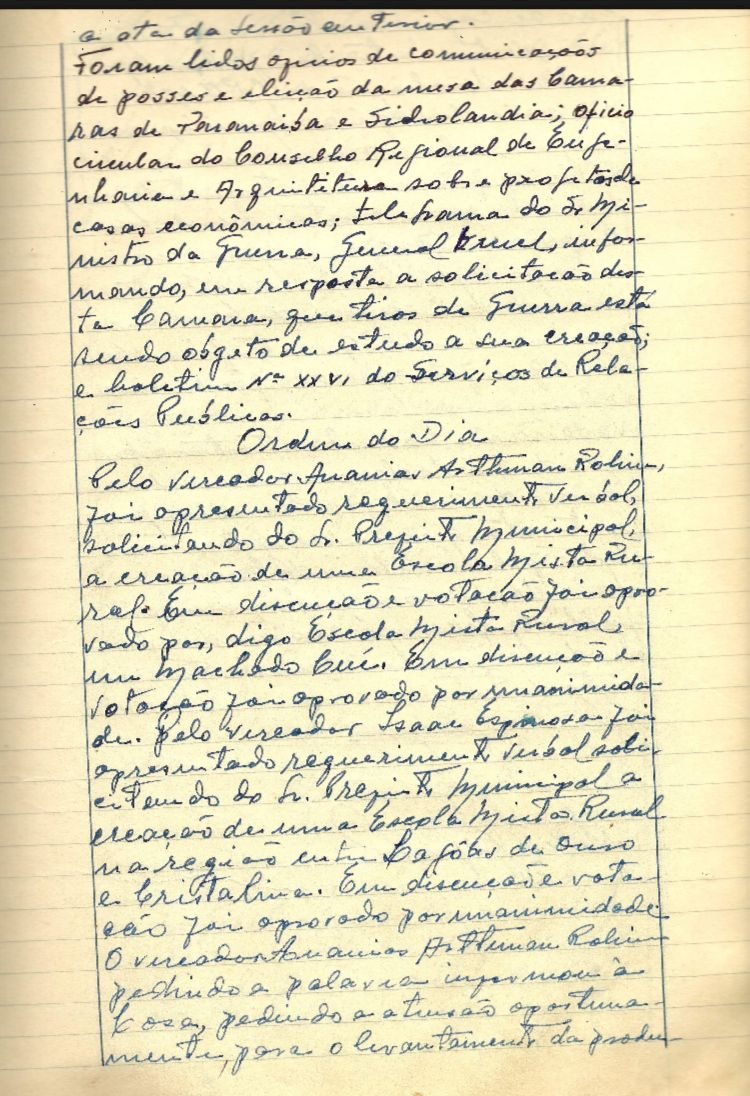 a ata da sessão anterior.
Foram lidos oficios de comunicaçoẽs
de posses e eleição da mesa das Cama-
ras de Paranaiba e Sidrolandia; oficio
circular do Conselho Regional de Enge-
nharia e Arquitetura sobre projetos de
casas econômicas; telegrama do Sr Mi-
nistro da Guerra, General Kruel, infor-
mando, em resposta a solicitação des-
ta Camara, que tiros de Guerra está
sendo objeto de estudo a sua creação;
e boletim Nº XXVI do Serviços de Rela-
ções Publicas.
Ordem do Dia
Pelo vereador Ananias Arthman Rolim,
foi apresentado requerimento verbal,
solicitando do Sr. Prefeito Municipal,
a creação de uma Escola Mista Ru-
ral. Em discução e votação foi apro-
vado por, digo Escola Mista Rural,
em Machado Cué. Em discução e
votação foi aprovado por unanimida-
de. Pelo vereador Isaac Espinosa foi
apresentado requerimento verbal soli-
citando do Sr. Prefeito Municipal a
creação de uma Escola Mista Rural
na região entre Lagôas de Ouro
e Cristalina. Em discução e vota-
ção foi aprovado por unanimidade.
O vereador Ananias Arthman Rolim
pedindo a palavra informou à
Casa, pedindo a atensão oportuna-
mente, para o levantamento da produ-